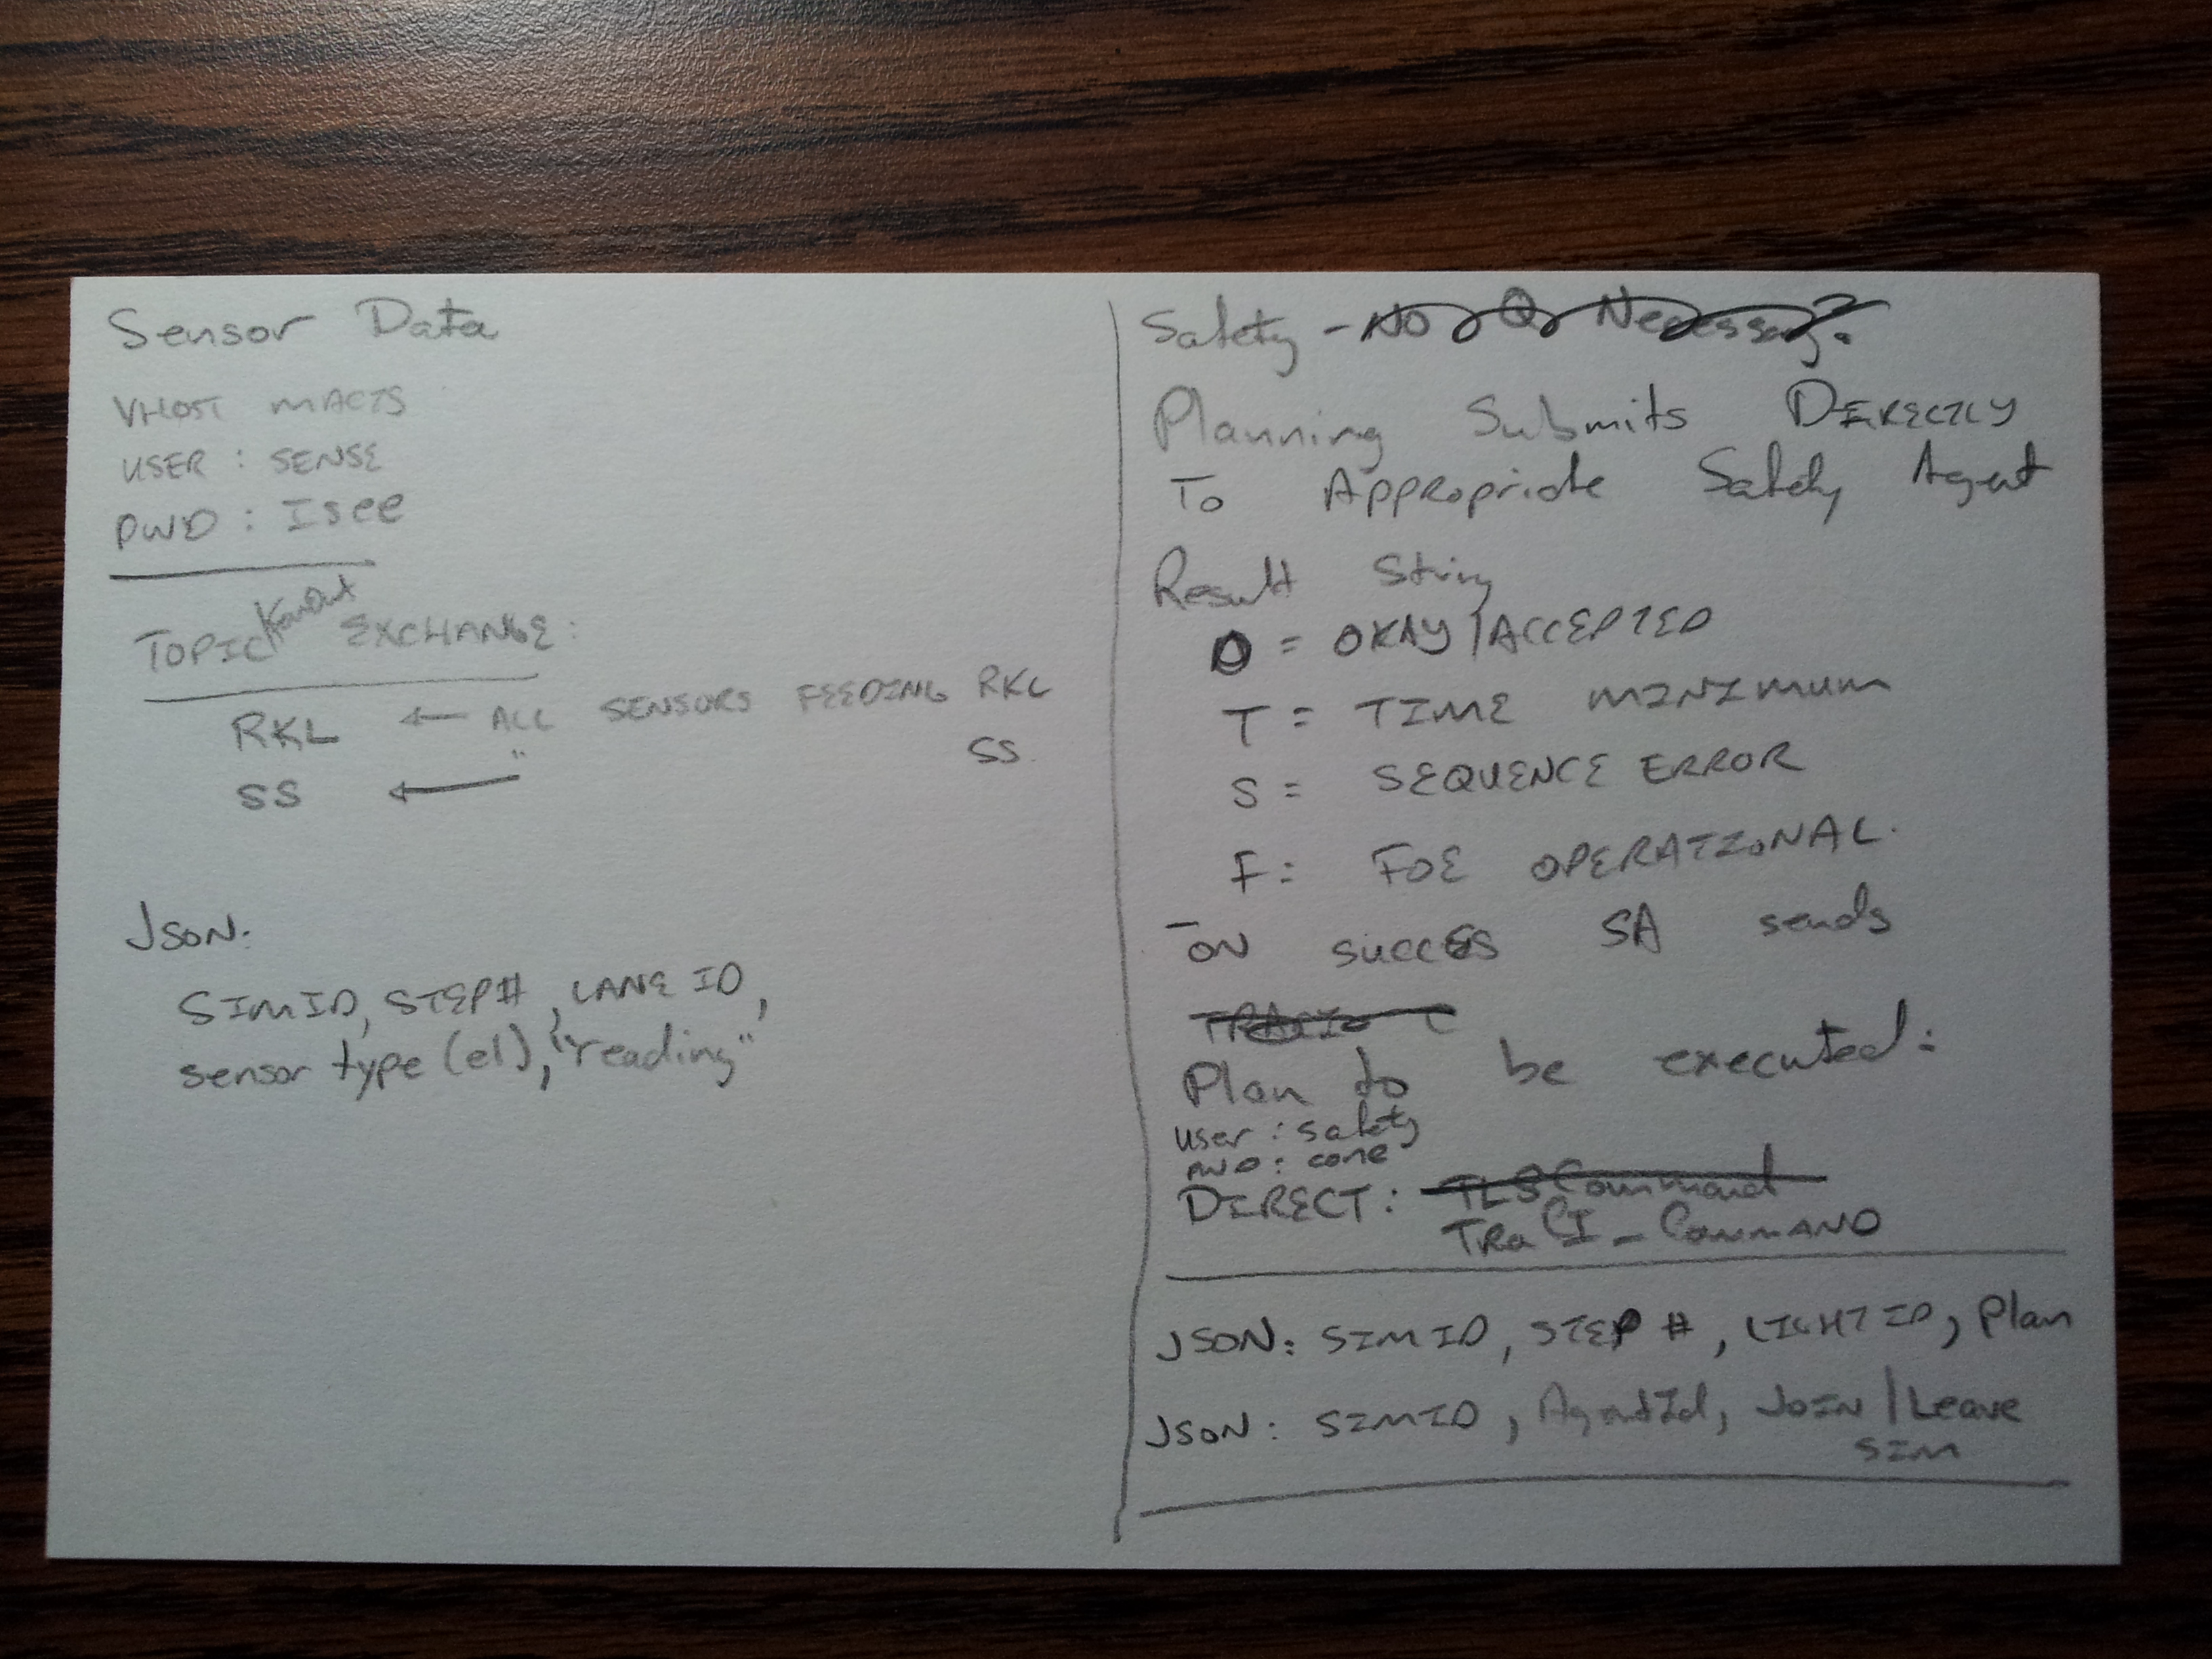 Sensor Data
VHOST MACTS
USER : SENSE
PWD : Isee
TOPIC FanOut EXCHANGE:
RKL ← ALL SENSORS FEEDING RKL
SS ← " SS
JSON:
SIMID, STEP#, LANE ID,
sensor type (e1), "reading"
Safety - No Q Necessary?
Planning Submits DIRECTLY
To Appropriate Safety Agent
Result String
O = OKAY | ACCEPTED
T = TIME MINIMUM
S = SEQUENCE ERROR
F = FOE OPERATIONAL.
- ON SUCCES SA sends
Plan to be executed:
user : safety
PWD : cone
DIRECT: TLSCommand
TRaCI_COMMAND
JSON: SIMID, STEP #, LIGHTID, Plan
JSON: SIMID, AgentId, JOIN | Leave
SIM